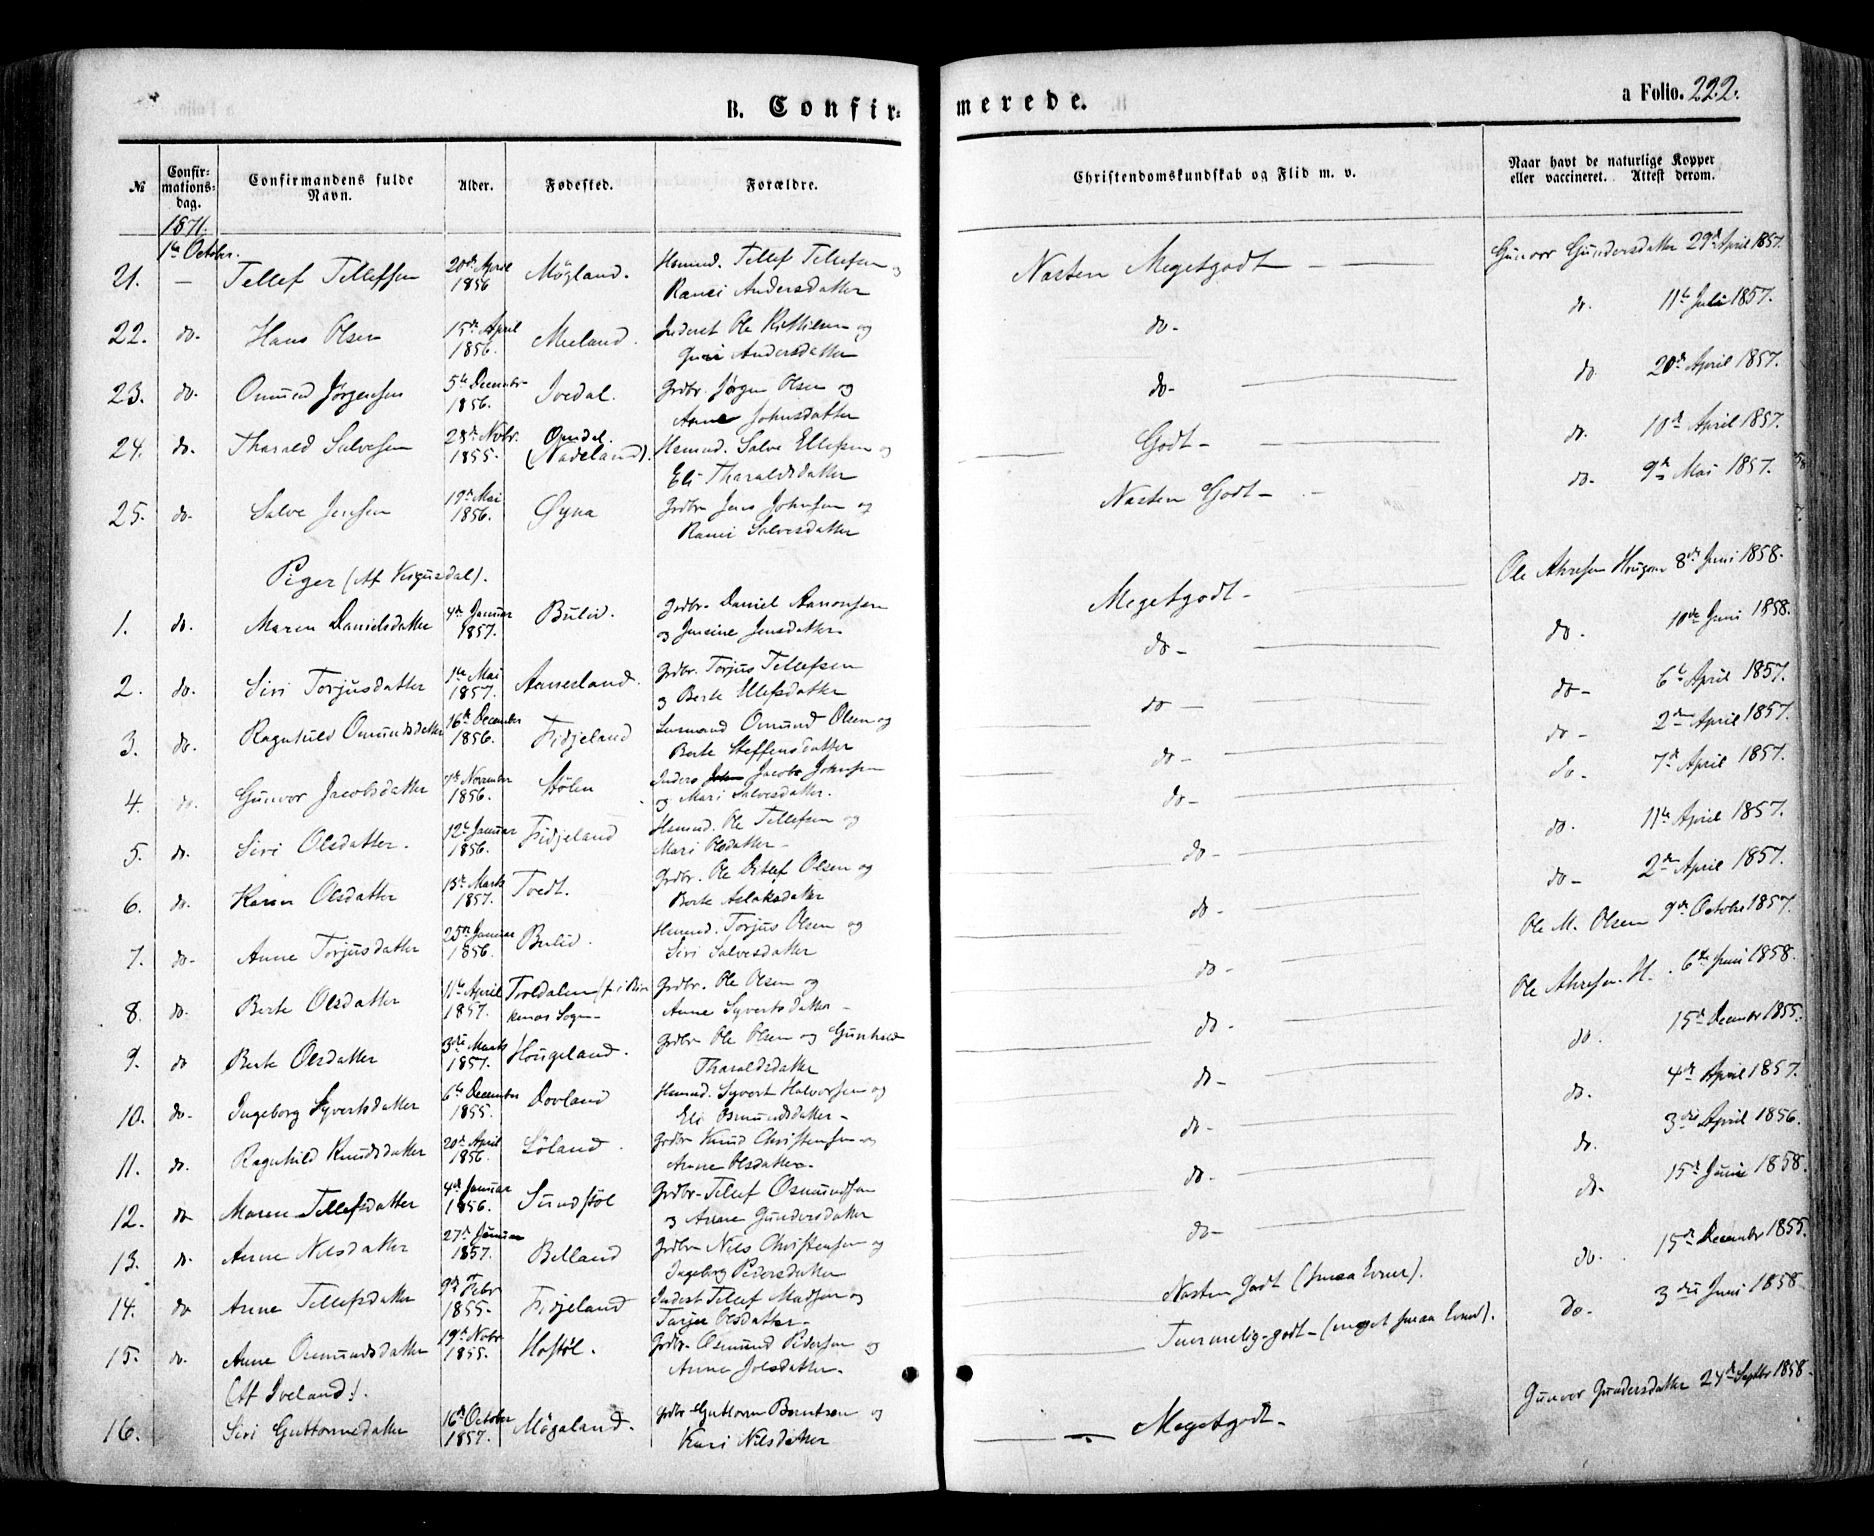 B. Confir-
merede.
a Folio. 222.
№
Confir-
mations-
dag.
Confirmandens fulde
Navn.
Alder.
Fødested.
Forældre.
Christendomskundskab og Flid m. v.
Naar havt de naturlige Kopper
eller vaccineret. Attest derom.
1871.
1te October.
21. — Tellef Tellefsen 20de April 1856 Mögland. Huusmd. Tellef Tellefsen og
Ranei Andersdatter
Næsten Megetgodt — Gunvor Gundersdatter 29de April 1857.
22. do. Hans Olsen 15de April 1856. Mieland. Inderst Ole Kittilsen og
Guri Andersdatter
do- do. 11te Juli 1857.
23. do. Omund Jörgensen 5te December 1856. Ivedal. Grdbr. Jörgen Olsen og
Anne Johnsdatter
do- do. 20de April 1857.
24. do. Tharald Salvesen 28de Novbr. 1855. (Nadeland). Huusmd. Salve Ellefsen og
Eli Tharaldsdatter
Godt- do. 10de April 1857.
25. do. Salve Jensen 19de Mai 1856. Øyna Grdbr Jens Johnsen og
Ranei Salvesdatter
Næsten Godt- do. 9de Mai 1857.
Piger (Af Vegusdal).
1. do. Maren Danielsdatter 4de Januar 1857. Bulid. Grdbr- Daniel Aanonsen
og Jensine Jensdatter
Megetgodt- Ole Ahresen Hougom 8de Juni 1858.
2. do. Siri Torjusdatter 1te Mai 1857. Aanesland. Grdbr. Torjus Tellefsen
og Berte Ellefsdatter
do- do. 10de Juni 1858.
3. do. Ragnhild Omundsdatter 16de December 1856. Fidjeland Omund Olsen og
Berte Steffensdatter
do- do- 6te April 1857.
4. do. Gunvor Jacobsdatter November 1856. Stölen Inders Jacob Johnsen
og Mari Salvesdatter.
do- do- 2den April 1857.
5. do. Siri Olsdatter. 12te Januar 1856. Fidjeland Huusmd. Ole Tellefsen og
Mari Olsdatter-
do- do. 7de April 1857.
6. do. Karen Olsdatter 13de Marts 1857. Tvedt. Grdbr. Ole Ditlef Olsen og
Berte Aslaksdatter
do- do. 11te April 1857.
7. do- Anne Torjusdatter 25de Januar 1856. Bulid. Huusmd. Torjus Olsen og
Siri Salvesdatter
do- do- 2den April 1857.
8. do. Berte Olsdatter 11te April 1857. Toveldalen (f. i Bir-
kenæs Sogn- Grdbr. Ole Olsen og
Anne Syvertsdatter-
do- Ole M. Olsen 9de October 1857.
9. do Berte Olsdatter 3die Marts 1857. Hougeland. Grdbr Ole Olsen og Gunhild
Tharaldsdatter
do- Ole Ahresen H. 6te Juni 1858.
10. do- Ingeborg Syvertsdatter 6te December 1855. Dovland Huusmd. Syvert Halvorsen og
Eli Osmundsdatter-
do- do. 15de December 1855.
11. do. Ragnhild Knudsdatter 20de April 1856. Söland. Grdbr Knud Christensen og
Anne Olsdatter-
do- do. 4de April 1857.
12. do Maren Tellefsdatter 4de Januar 1856. Sundstöl Grdbr- Tellef Osmundsen
og Anne Gundersdatter
do- do. 3die April 1856.
13. do- Anne Nilsdatter 27de Januar 1857. Belland Grdbr Nils Christensen og
Ingeborg Pedersdatter
do- do- 15de Junie 1858.
14. do Anne Tellefsdatter 9de Febr 1855. Fidjeland Inderst Tellef Madsen og
Tarjer Olsdatter-
Næsten Godt (smaa Evner). do. 15de December 1855.
15. do. Anne Osmundsdatter 19de Novbr 1855. Hostöl. Grdbr- Osmund Pedersen og
Anne Joelsdatter-
Temmelig-godt- (meget smaa Evner). do- 3die Juni 1858.
(Af Iveland).
16. Siri Guttormsdatter 16de October 1857. Mögaland. Grdbr- Guttorm Berntsen og
Kari Nilsdatter
Megetgodt- Gunvor Gundersdatter 24de Septbr 1858.